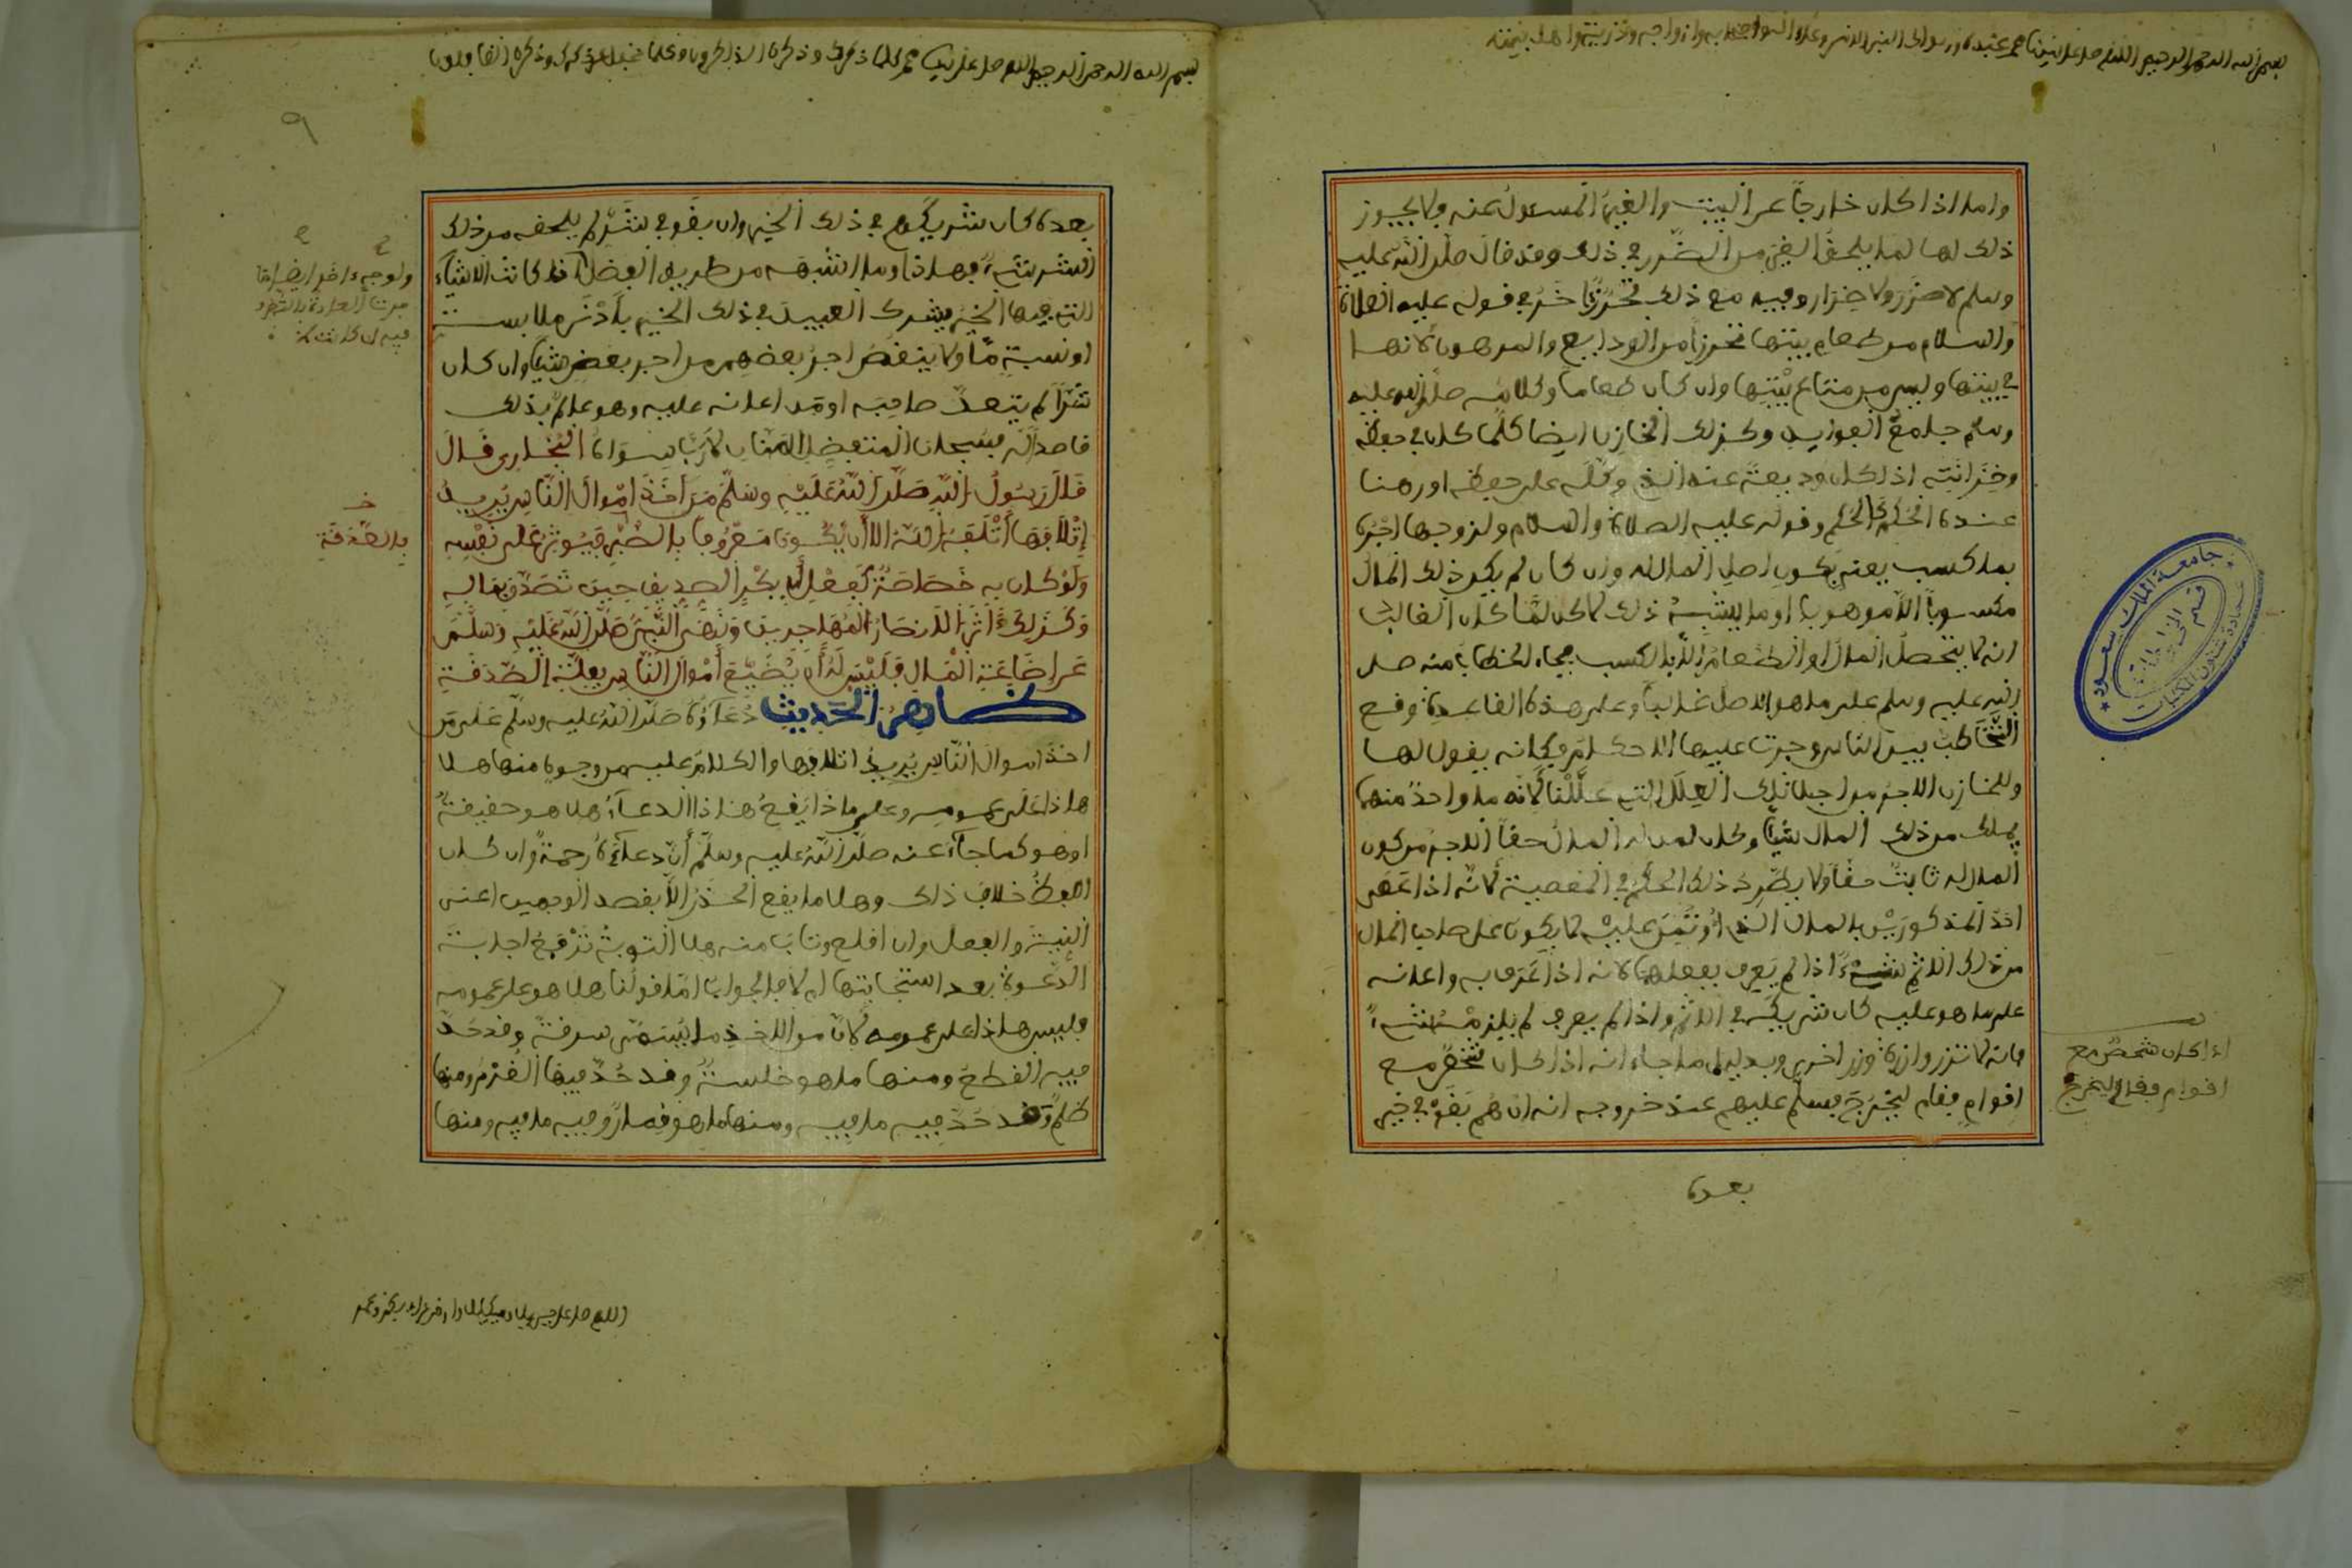 بسم الله الرحمن الرحيم اللهم صل على نبينا محمد عبدك ورسولك النبي الامي وعلى اله واصحابه وازواجه وذريته واهل بيته
واما اذا كان خارجا عن البيت والغير المسءول عنه ولا يجوز
ذلك لها لما يلحق الغير من الضرر في ذلك وقد قال صلى الله عليه
وسلم لا ضرر ولا ضرار وفيه مع ذلك تحرز اخر في قوله عليه الصلاة
والسلام من طعام بيتها تحرزا من الودايع والمرهون لانها
في بيتها وليس من متاع بيتها وان كان طعاما وكلامه صلى الله عليه
وسلم جامع الفوايد وكذلك الخازن ايضا كلما كان في حفظه
وخزانته اذ اكان وديعة عند الذي وكله على حفظه او رهنا
عنده الحكم كالحكم وقوله عليه الصلاة والسلام ولزوجها اجره
بما كسب يعني يكون اصل المال له وان كان لم يكن ذلك المال
مكسوبا الا موهوبا او ما يشبه ذلك لاكن لما كان الغالب
انه لا يتحصل المال او الطعام الا بالكسب فجاء الخطاب منه صلى
الله عليه وسلم على ما هو الاصل غالبا وعلى هذه القاعدة وقع
التخاطب بين الناس وجرت عليها الاحكام فكانه يقول لها
وللخازن الاجر من اجل تلك العلل التي عللنا لانه ما واحد منهما
يملك من ذلك المال شيا وكان لمن له المال حقا الاجر من كون
المال له ثابت حقا ولا يطرد ذلك الحكم في المعصية لانه اذا عصى
احد المذكورين بالمال الذي اوتمن عليه لا يكون على صاحب المال
من ذلك الاثم شيء اذا لم يعرف بفعلهما لانه اذا عرف به واعانه
على ما هو عليه كان شريكه في الاثم واذا لم يعرف لم يلزمه شيء
فانه لا تزر وازرة وزر اخرى وبدليل ما جاء انه اذا كان شخص مع
اقوام فقام ليخرج فسلم عليهم عند خروجه انه ان هم بقوا في خير
بعده
اذا كان شخص مع
اقوام فقام ليخرج
جامعة الملك سعود
عمادة شئون المكتبات
قسم
بسم الله الرحمن الرحيم اللهم صل على نبينا محمد كلما ذكرك وذكره الذاكرون وكلما غفل عن ذكرك وذكره الغافلون
٩
بعده كان شريكهم في ذلك الخير وان بقوا في شر لم يلحقه من ذلك
الشر شيء فهاذا وما اشبهه من طريق الفضل اذا كانت الاشياء
التي فيها الخير يشرك العبيد في ذلك الخير بادنى ملابسة
او نسبة ما ولا ينقص اجر بعضهم من اجر بعض شيا وان كان
شرا لم يتعد صاحبه او من اعانه عليه وهو عالم بذلك
قاصدا له فسبحان المتفضل المنان لا رب سواه البخاري قال
قال رسول الله صلى الله عليه وسلم من اخذ اموال الناس يريد
إتلافها أتلفه الله الا أن يكون معروفا بالصبر فيوثر على نفسه
ولو كان به خصاصة كفعل أبي بكر الصديق حين تصدق بماله
وكذلك ءاثر الانصار المهاجرين ونهى النبي صلى الله عليه وسلم
عن إضاعة المال فليس له أن يضيع أموال الناس بعلة الصدقة
ظاهر الحديث دعاؤه صلى الله عليه وسلم على من
اخذ اموال الناس يريد اتلافها والكلام عليه من وجوه منها هل
هاذا على عمومه وعلى ماذا يقع هاذا الدعاء هل هو حقيقة
او هو كما جاء عنه صلى الله عليه وسلم أن دعاءه رحمة وان كان
اللفظ خلاف ذلك وهل ما يقع الحذر الا بقصد الوجهين اعني
النية والفعل وان اقلع وتاب منه هل التوبة ترفع اجابة
الدعوة بعد استجابتها ام لا فالجواب اما قولنا هل هو على عمومه
فليس هاذا على عمومه لان من الاخذ ما يسمى سرقة وقد حد
فيه القطع ومنها ما هو خلسة وقد حد فيها الغرم ومنها
ظلم وقد حد فيه ما فيه ومنها ما هو قمار وفيه ما فيه ومنها
بالصدقة